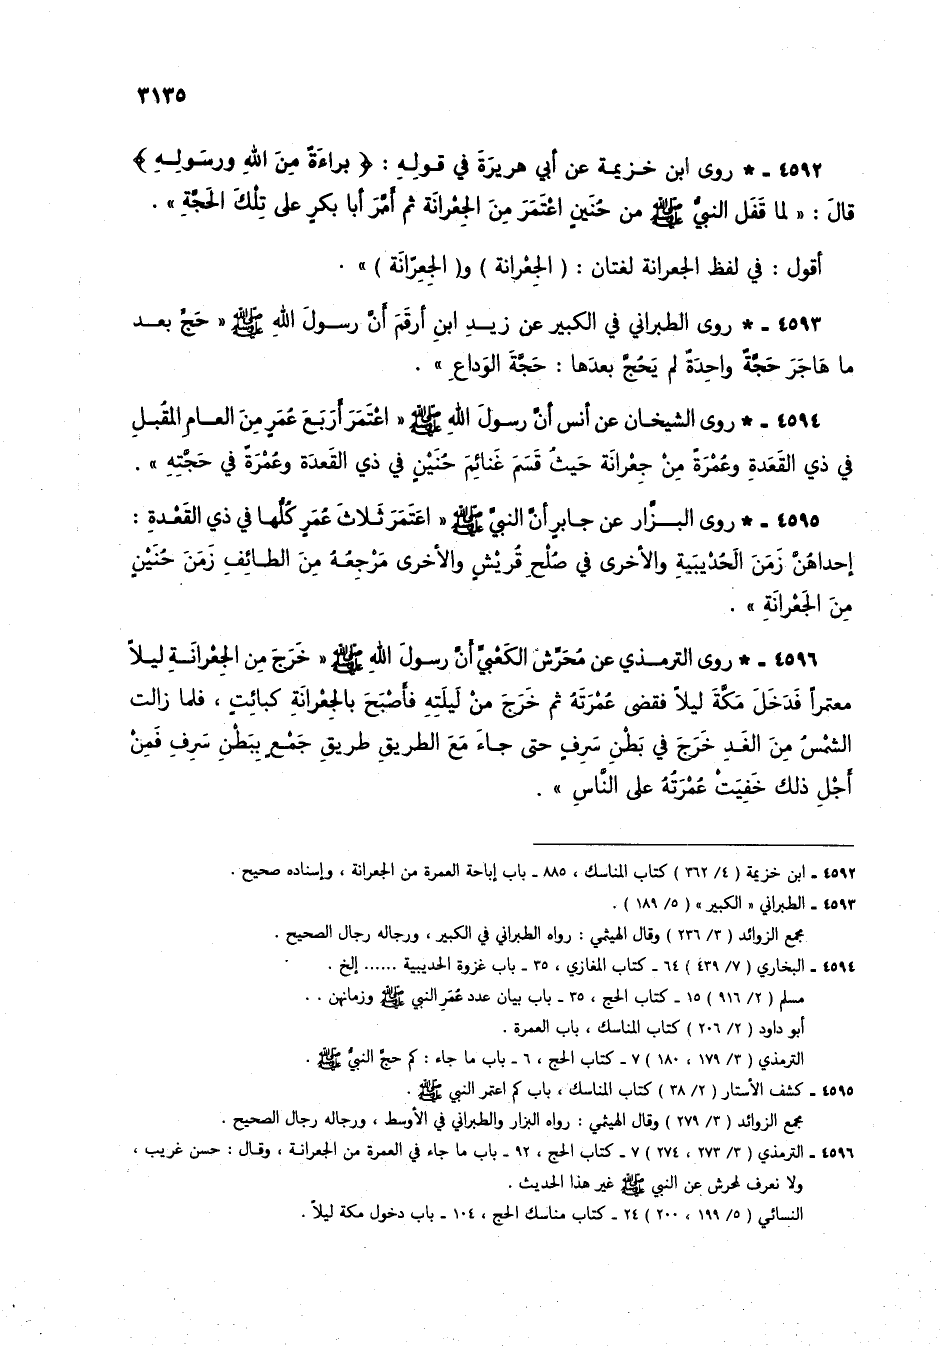 ٣١٣٥
٤٥٩٢ ـ * روى ابن خـزيمـة عن أبي هريرَةَ في قـولِـهِ : ﴿ براءَةٌ مِنَ اللهِ ورسَـولِـهِ ﴾
قالَ : « لما قَفَل النبيُّ ﷺ من حُنَينٍ اعْتَمَرَ مِنَ الجِعْرانَة ثم أَمَّرَ أبا بكرٍ على تِلْكَ الحَجَّة » .
أقول : في لفظ الجعرانة لغتان : ( الجِعْرانة ) و( الجِعِرّانَة ) » .
٤٥٩٣ ـ * روى الطبراني في الكبير عن زيـدِ ابنِ أرقَمَ أنَّ رسـولَ اللهِ ﷺ « حَجَّ بعـد
ما هَاجَرَ حَجَّةً واحِدَةً لم يَحُجَّ بعدَها : حَجَّةَ الوَداعِ » .
٤٥٩٤ ـ * روى الشيخـان عن أنس أنَّ رسولَ اللهِ ﷺ « اعْتَمَرَ أَرْبَعَ عُمَرٍ مِنَ العـامِ المُقْبِلِ
في ذي القَعَدةِ وعُمْرَةً مِنْ جِعْرانَة حَيثُ قَسَمَ غَنائِمَ حُنَيْنٍ في ذي القَعدَة وعُمْرَةً في حَجَّتِهِ » .
٤٥٩٥ ـ * روى البـزَّار عن جـابرٍ أنَّ النبيَّ ﷺ « اعتَمَرَ ثَـلاثَ عُمَرٍ كُلُّهـا في ذي القَعْـدةِ :
إحداهُنَّ زَمَنَ الحُدْيبَيةِ والأخرى في صُلْحِ قُريْشٍ والأخرى مَرْجِعُـهُ مِنَ الطـائِفِ زَمَنَ حُنَيْنٍ
مِنَ الجَعْرانَةِ » .
٤٥٩٦ ـ * روى الترمـذي عن مُحَرِّشِ الكَعْبيِّ أنَّ رسولَ اللهِ ﷺ « خَرَجَ مِن الجِعْرانَـةِ ليـلاً
معتمراً فَدَخَلَ مكَّةَ ليلاً فقضى عُمْرَتَهُ ثم خَرَجَ منْ لَيلَتِهِ فأصْبَحَ بالجِعْرانَةِ كبائِتٍ ، فلما زالت
الشمْسُ مِنَ الغَـدِ خَرَجَ في بَطْنِ سَرِفٍ حتى جـاءَ مَعَ الطريقِ طريقِ جَمْعٍ بِبَطْنِ سَرِفٍ فَمِنْ
أَجْلِ ذلك خَفِيَتْ عُمْرَتُهُ على النَّاسِ » .
٤٥٩٢ ـ ابن خزيمة ( ٤/ ٣٦٢ ) كتاب المناسك ، ٨٨٥ ـ باب إباحة العمرة من الجعرانة ، وإسناده صحيح .
٤٥٩٣ ـ الطبراني « الكبير » ( ٥/ ١٨٩ ) .
مجمع الزوائد ( ٣/ ٢٣٦ ) وقال الهيثمي : رواه الطبراني في الكبير ، ورجاله رجال الصحيح .
٤٥٩٤ ـ البخاري ( ٧/ ٤٣٩ ) ٦٤ ـ كتاب المغازي ، ٣٥ ـ باب غزوة الحديبية ...... إلخ .
مسلم ( ٢/ ٩١٦ ) ١٥ ـ كتاب الحج ، ٣٥ ـ باب بيان عدد عُمَرِ النبي ﷺ وزمانهن . .
أبو داود ( ٢/ ٢٠٦ ) كتاب المناسك ، باب العمرة .
الترمذي ( ٣/ ١٧٩ ، ١٨٠ ) ٧ ـ كتاب الحج ، ٦ ـ باب ما جاء : كم حجَّ النبيُّ ﷺ .
٤٥٩٥ ـ كشف الأستار ( ٢/ ٣٨ ) كتاب المناسك ، باب كم اعتمر النبي ﷺ .
مجمع الزوائد ( ٣/ ٢٧٩ ) وقال الهيثمي : رواه البزار والطبراني في الأوسط ، ورجاله رجال الصحيح .
٤٥٩٦ ـ الترمذي ( ٣/ ٢٧٣ ، ٢٧٤ ) ٧ ـ كتاب الحج ، ٩٢ ـ باب ما جاء في العمرة من الجعرانـة ، وقـال : حسن غريب ،
ولا نعرف لمحرش عن النبي ﷺ غير هذا الحديث .
النسائي ( ٥/ ١٩٩ ، ٢٠٠ ) ٢٤ ـ كتاب مناسك الحج ، ١٠٤ ـ باب دخول مكة ليلاً .